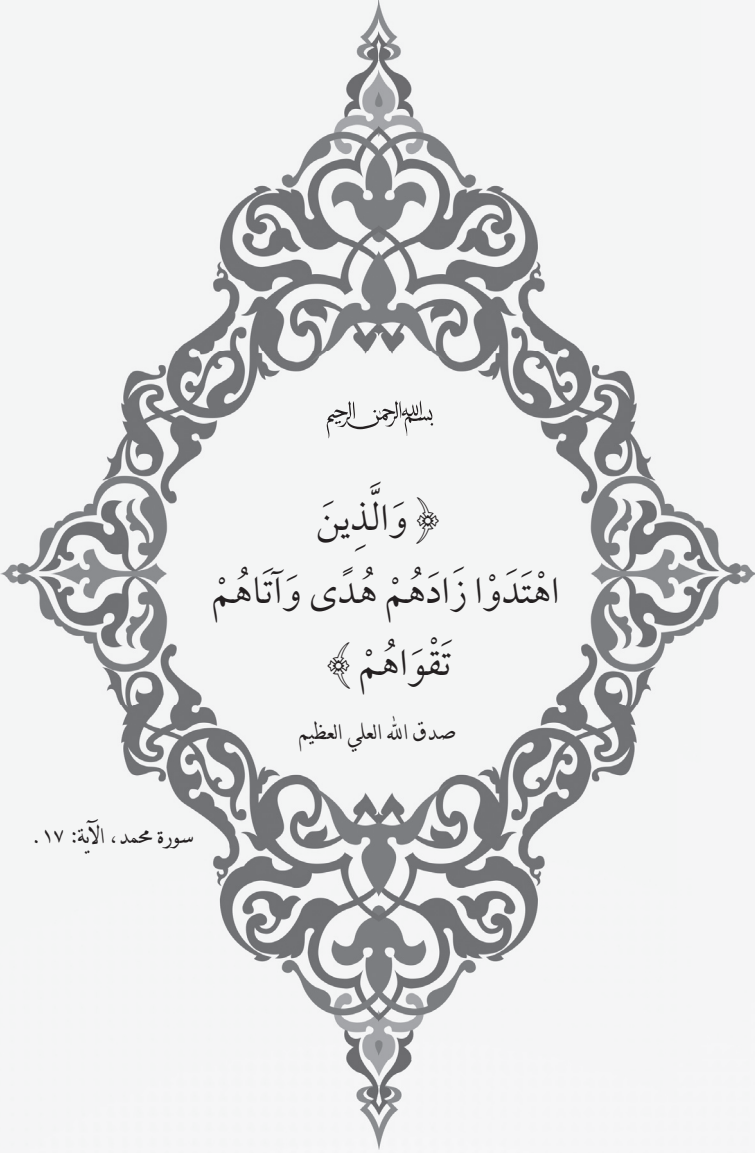 بسم الله الرحمن الرحيم
﴿ وَالَّذِينَ
اهْتَدَوْا زَادَهُمْ هُدًى وَآتَاهُمْ
تَقْوَاهُمْ ﴾
صدق الله العلي العظيم
سورة محمد، الآية: ١٧.